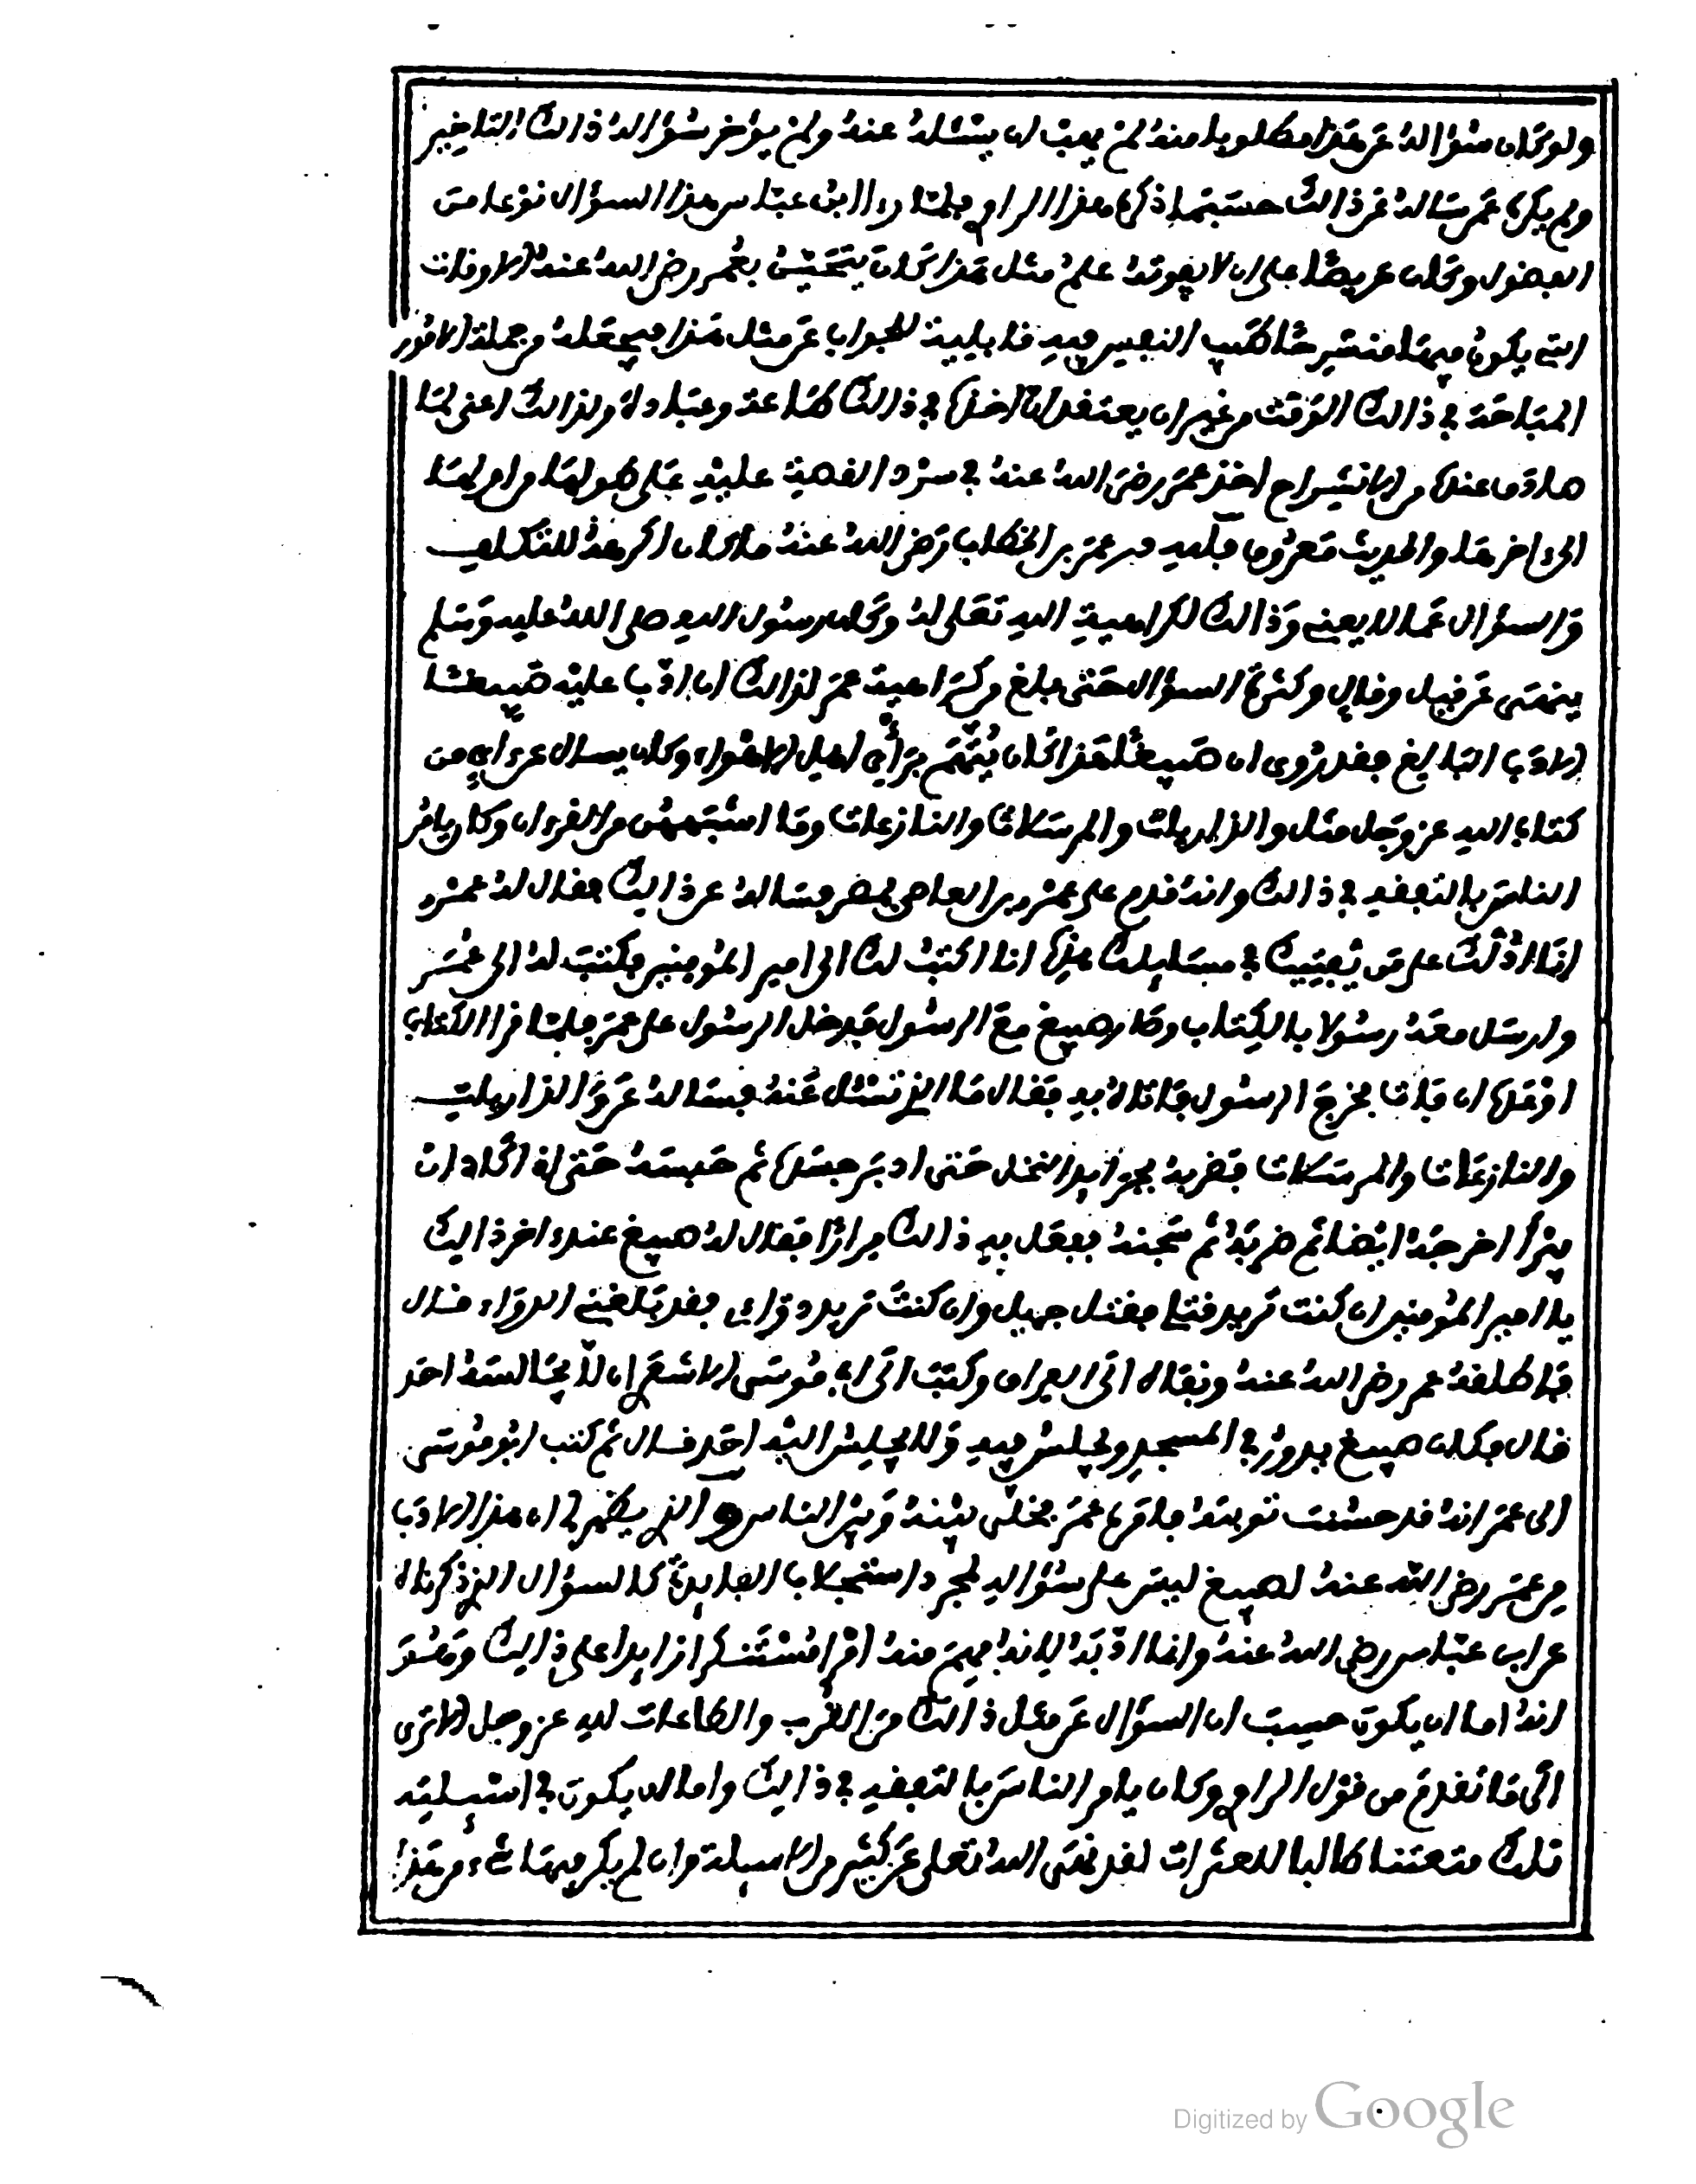 ولو كان سؤاله عن هذا مطلوبا منه لم يهب ان يسئله عنه ولم يؤخر سؤاله ذالك التاخير
ولم يكن عمر سأله عن ذالك حسبما ذكره هذا الراوي فلما رءا ابن عباس هذا السؤال نوعا من
الفضول وكان حريصا على ان لا يفوته علم مثل هذا كان يتحين بعمر رضي الله عنه الاوقات
التي يكون فيها منشرحا طيب النفس فيه قابلية للجواب عن مثل هذا فيجعله من جملة الامور
المباحة في ذالك الوقت من غير ان يعتقد ان اخذه في ذالك طاعة وعبادة ولذالك اعني لما
صادف عنده من الانشراح اخذ عمر رضي الله عنه في سرد القصة عليه على طولها من اولها
الى ءاخرها والحديث معروف فلله در عمر بن الخطاب رضي الله عنه ما كان اكرهه للتكلف
والسؤال عما لا يعني وذالك لكراهية الله تعلى له وكان رسول الله صلى الله عليه وسلم
ينهى عن قيل وقال وكثرة السؤال حتى بلغ من كراهية عمر لذالك ان ادب عليه صبيغا
الادب البالغ فقد روي ان صبيغا هذا كان يتهم برأي اهل الاهواء وكان يسال عن اي من
كتاب الله عز وجل مثل والذاريات والمرسلات والنازعات وما اشبههن من القرءان وكان يامر
الناس بالتفقه في ذالك وانه قدم على عمرو بن العاصي بمصر فسأله عن ذالك فقال له عمرو
انا ادلك على من يفتيك في مسايلك هذه انا اكتب لك الى امير المؤمنين فكتب له الى عمر
وارسل معه رسولا بالكتاب وكان صبيغ مع الرسول فدخل الرسول على عمر فلما قرا الكتاب
ان فات فخرج الرسول فاتاه به فقال ما الذي تسئل عنه فسأله عن والذاريات
والنازعات والمرسلات فضربه بجرايد النخل حتى ادبر جسده ثم حبسه حتى اذا كاد ان
يبرأ اخرجه ايضا ثم ضربه ثم سجنه ففعل به ذالك مرارا فقال له صبيغ عند ءاخر ذالك
يا امير المؤمنين ان كنت تريد قتلي فقتل جهيل وان كنت تريد دوائي فقد بلغني الدواء قال
فاطلقه عمر رضي الله عنه ونفاه الى العراق وكتب الى ابي موسى الاشعري ان لا يجالسه احد
قال فكان صبيغ يدور في المسجد ويجلس فيه ولا يجلس اليه احد قال ثم كتب ابو موسى
الى عمر انه قد حسنت توبته فامره عمر فخلى بينه وبين الناس والذي يظهر لي ان هذا الادب
من عمر رضي الله عنه لصبيغ ليس على سؤاله لمجرد استجلاب الفايدة كالسؤال الذي ذكرناه
عن ابن عباس رضي الله عنه وانما ادبه لانه فهم منه امرا مستنكرا زايدا على ذالك وهو
انه اما ان يكون حسب ان السؤال عن مثل ذالك من القرب والطاعات لله عز وجل الا ترى
الى ما تقدم من قول الراوي وكان يامر الناس بالتفقه في ذالك واما ان يكون في اسيلته
تلك متعنتا طالبا للعثرات لقد نهى الله تعلى عن كثير من الاسيلة وان لم يكن فيها شيء من هذا
Digitized by Google